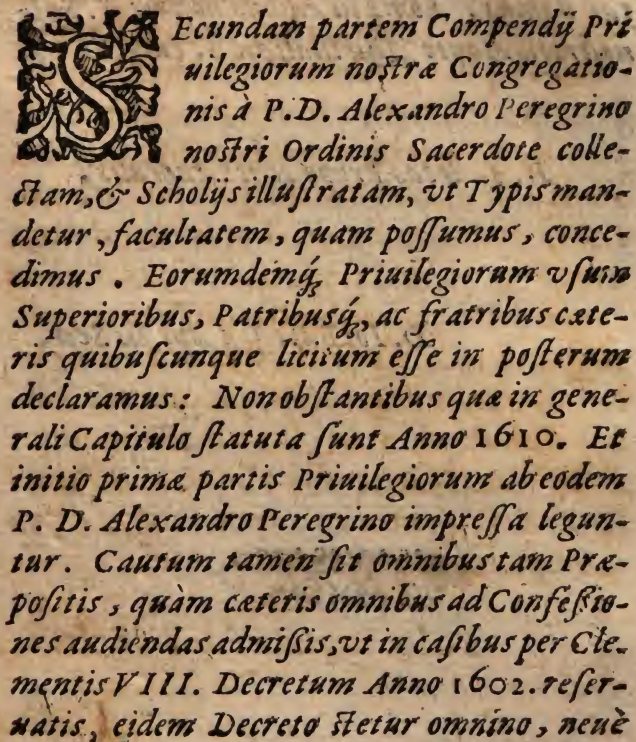 SEcundam partem Compendij Pri
uilegiorum nostræ Congregatio-
nis à P. D. Alexandro Peregrino
nostri Ordinis Sacerdote colle-
ctam, & Scholijs illustratam, vt Typis man-
detur, facultatem, quam possumus, conce-
dimus. Eorumdemq́; Priuilegiorum vsum
Superioribus, Patribusq́;, ac fratribus cæte-
ris quibuscunque licitum esse in posterum
declaramus: Non obstantibus quæ in gene-
rali Capitulo statuta sunt Anno 1610. Et
initio primæ partis Priuilegiorum ab eodem
P. D. Alexandro Peregrino impressa legun-
tur. Cautum tamen sit omnibus tam Præ-
positis, quàm cæteris omnibus ad Confessio-
nes audiendas admissis, vt in casibus per Cle-
mentis VIII. Decretum Anno 1602. reser-
uatis, eidem Decreto stetur omnino, neuè